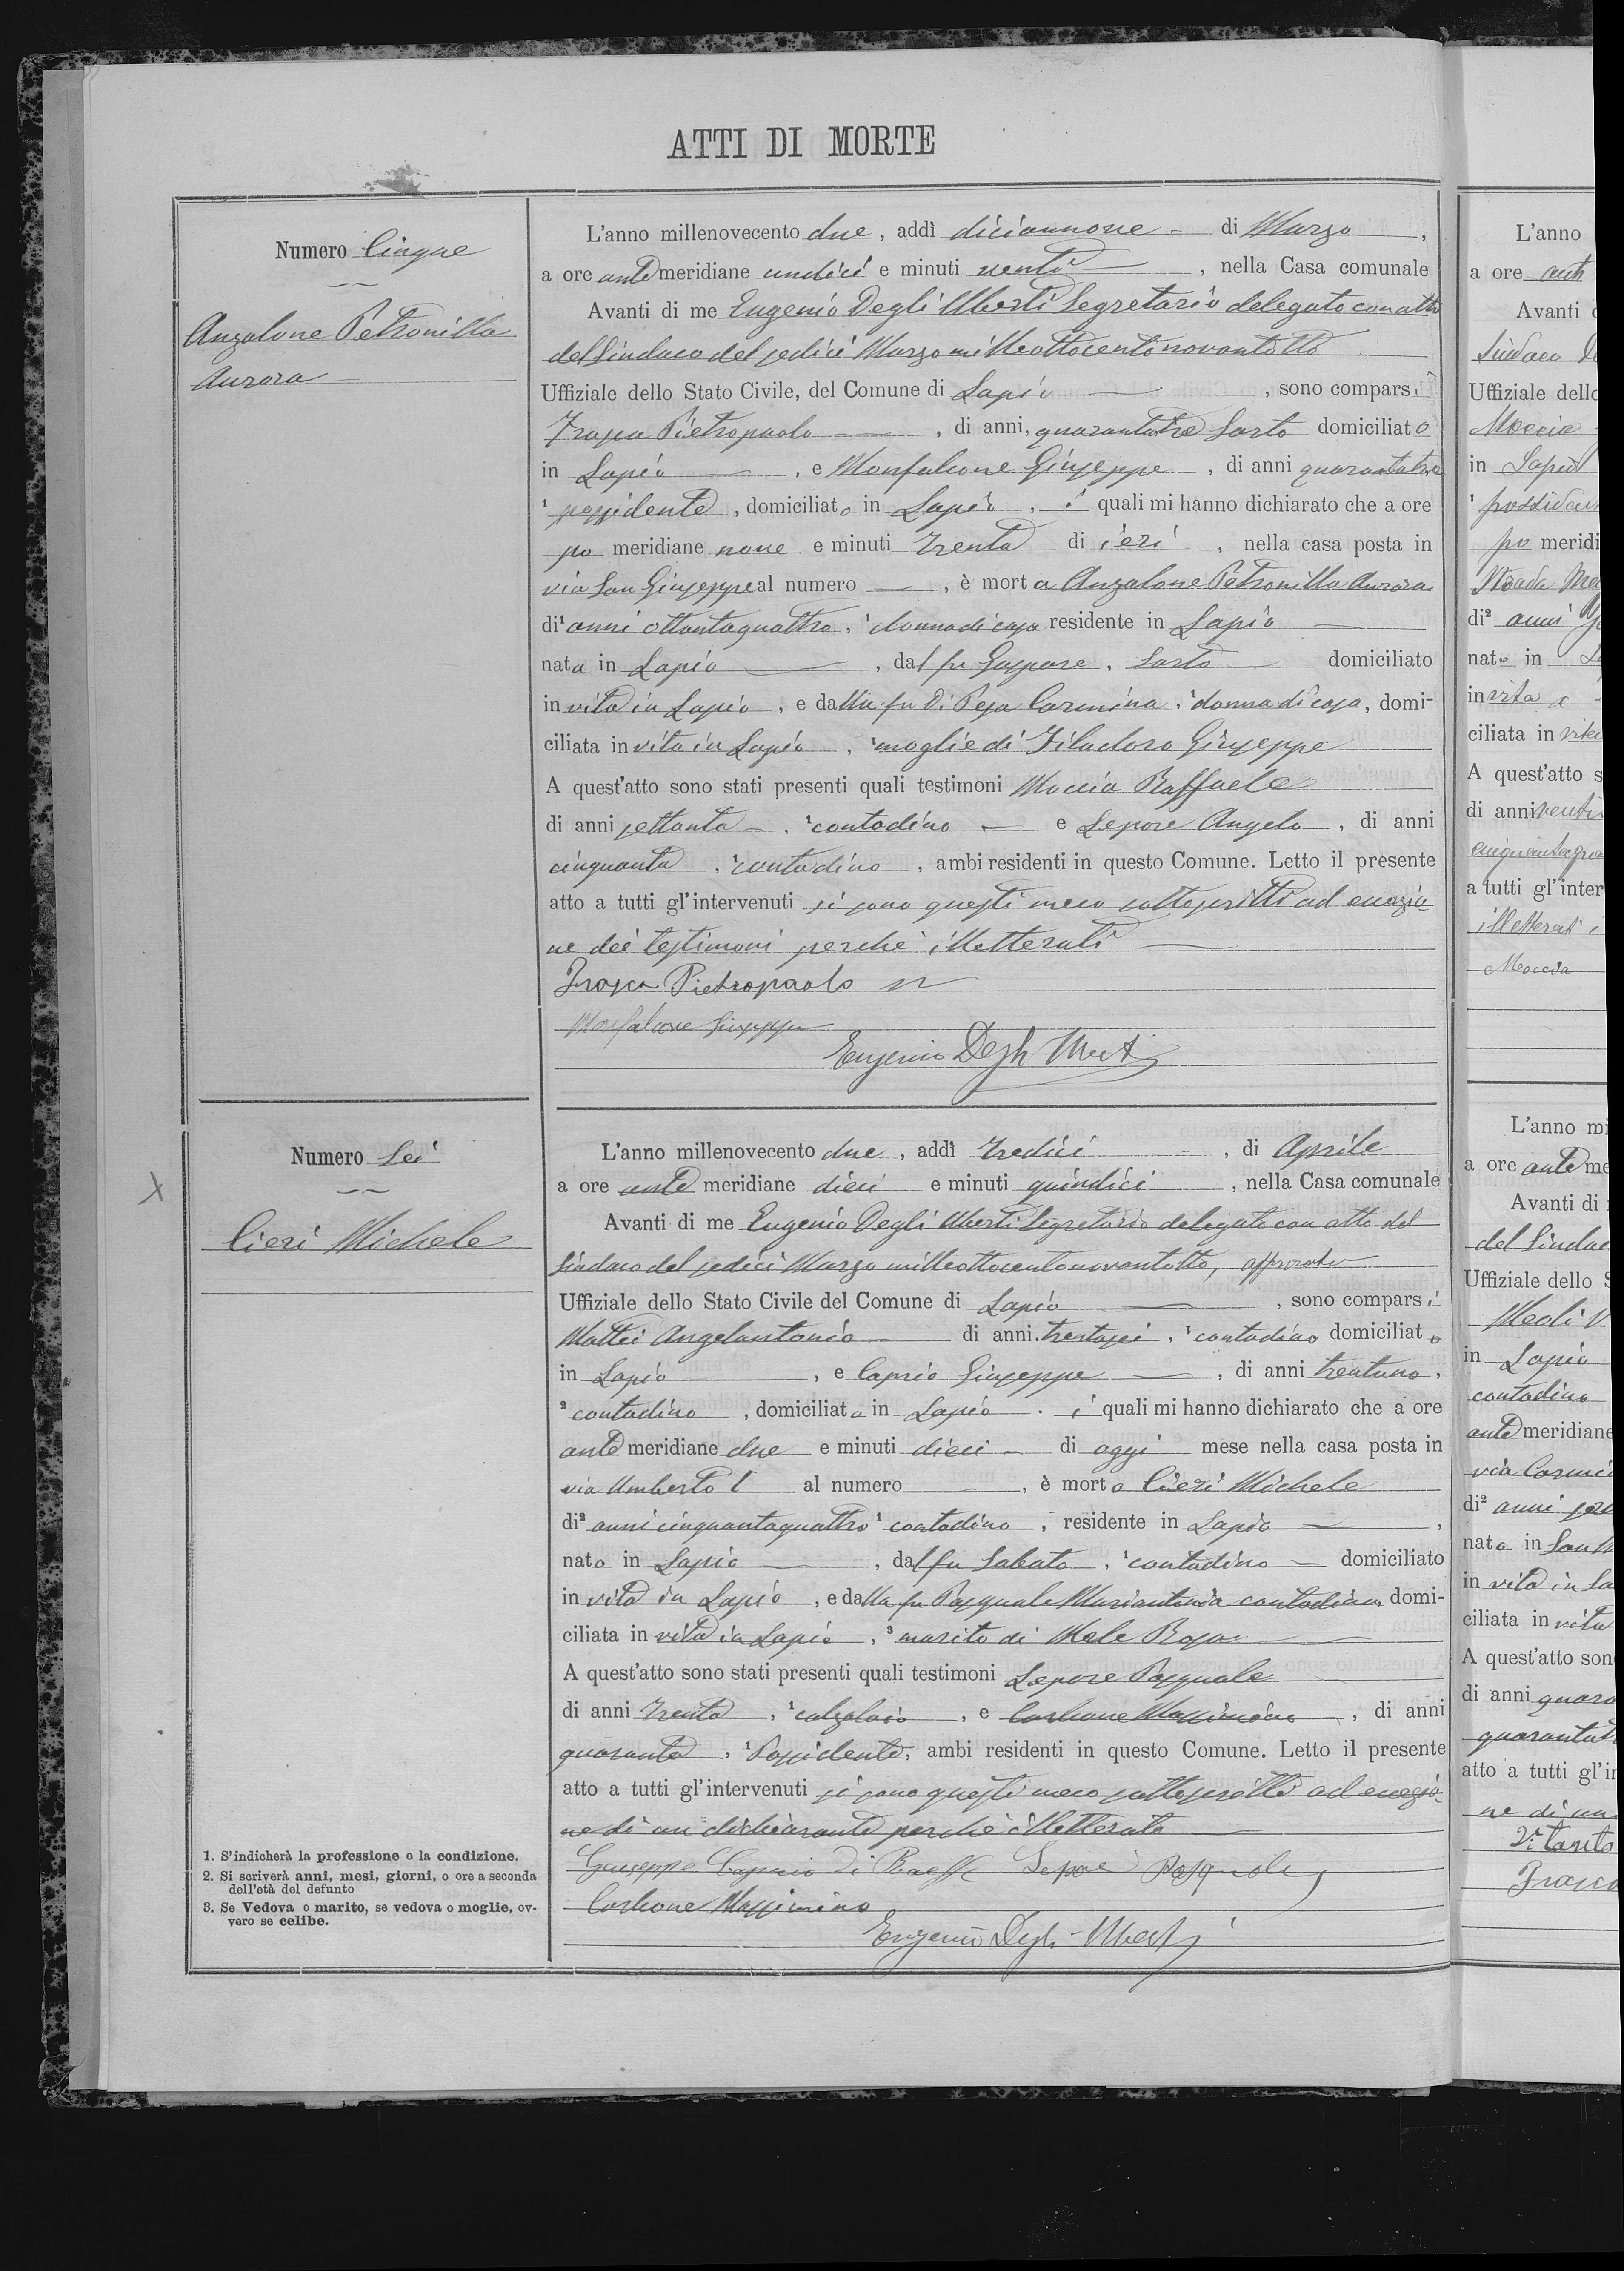 ATTI DI MORTE
Numero Cinque
Anzalone Petronilla
Aurora
L'anno millenovecento due, addì diciannove di Marzo,
a ore antemeridiane undici e minuti venti, nella Casa comunale
Avanti di me Eugenio Degli Uberti Segretario delegato con atto
del Sindaco del sedici Marzo milleottocentonovantotto
Uffiziale dello Stato Civile, del Comune di Lapio, sono comparsi
Frasca Pietropaolo, di anni, quarantatre Sarto domiciliato
in Lapio, e Monfalcone Giuseppe, di anni quarantatre
1 possidente, domiciliato in Lapio, i quali mi hanno dichiarato che a ore
po meridiane nove e minuti trenta di ieri, nella casa posta in
via San Giuseppe al numero, è morta Anzalone Petronilla Aurora
di 1 anni ottantaquattro, 1 donna di casa residente in Lapio
nata in Lapio, dal fu Gaspare, Sarto domiciliato
in vita in Lapio, e dalla fu Di Pesa Carmina, 1 donna di casa, domi-
ciliata in vita in Lapio, 1 moglie di Filadoro Giuseppe
A quest'atto sono stati presenti quali testimoni Moccia Raffaele
di anni settanta, 1 contadino e Lepore Angelo, di anni
cinquanta, 1 contadino, ambi residenti in questo Comune. Letto il presente
atto a tutti gl'intervenuti si sono questi meco sottoscritti ad eccezio-
ne dei testimoni perchè illetterati
Frasca Pietropaolo
Monfalcone Giuseppe
Eugenio Degli Uberti
Numero Sei
X
Cieri Michele
L'anno millenovecento due, addì tredici, di Aprile
a ore ante meridiane dieci e minuti quindici, nella Casa comunale
Avanti di me Eugenio Degli Uberti Segretario delegato con atto del
Sindaco del sedici Marzo milleottocentonovantotto, approvato
Uffiziale dello Stato Civile del Comune di Lapio, sono comparsi
Mattei Angelantonio di anni trentasei, 1 contadino domiciliato
in Lapio, e Caprio Giuseppe, di anni trentuno,
2 contadino, domiciliato in Lapio. i quali mi hanno dichiarato che a ore
ante meridiane due e minuti dieci di oggi mese nella casa posta in
via Umberto I al numero, è morto Cieri Michele
di 2 anni cinquantaquattro 1 contadino, residente in Lapio,
nato in Lapio, dal fu Sabato, 1 contadino domiciliato
in vita in Lapio, e dalla fu Pasquale Mariantonia contadina domi-
ciliata in vita in Lapio, 3 marito di Mele Rosa
A quest'atto sono stati presenti quali testimoni Lepore Pasquale
di anni trenta, 1 calzolaio, e Carbone Massimino, di anni
quaranta, 1 Possidente, ambi residenti in questo Comune. Letto il presente
atto a tutti gl'intervenuti si sono questi meco sottoscritti ad eccezio-
ne di un dichiarante perchè illetterato
Giuseppe Caprio di Lepore Pasquale
Carbone Massimino
Eugenio Degli Uberti
1. S'indicherà la professione o la condizione.
2. Si scriverà anni, mesi, giorni, o ore a seconda
dell'età del defunto
3. Se Vedova o marito, se vedova o moglie, ov-
vero se celibe.
L'anno
a ore ant
Avanti
Sindaco
Uffiziale dello
Moccia
in Lapio
1 possiden
po meridi
Strada
di 2 anni
nato in
in vita
ciliata in vita
A quest'atto s
di anni venti
cinquantaqua
a tutti gl'inter
illetterati
Moccia
L'anno mi
a ore ante me
Avanti di
del Sindac
Uffiziale dello S
in Lapio
contadino
ante meridiane
via Carmi
di 2 anni
nato in San M
in vita in La
ciliata in vita
A quest'atto son
di anni quara
quarantat
atto a tutti gl'in
ne di un
Frasca